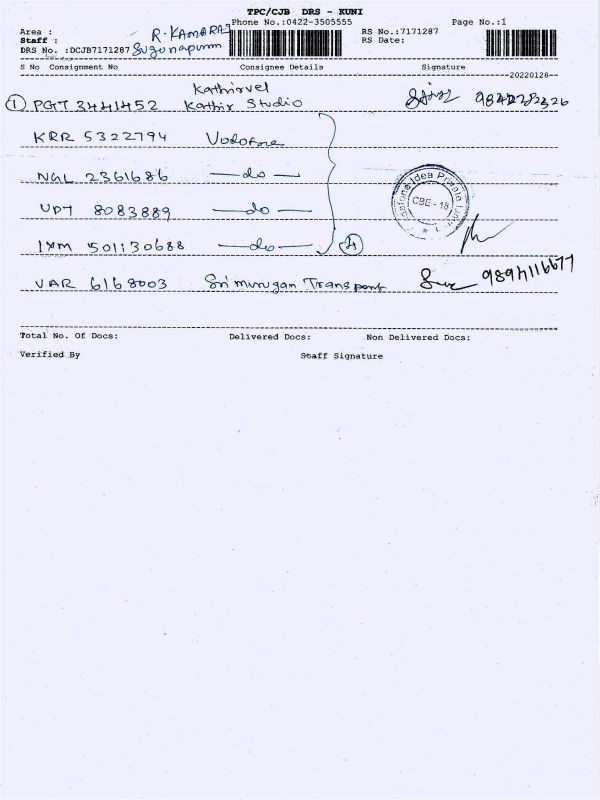 TPC/CJB DRS - KUNI
Phone No.:0422-3505555 Page No.:1
Area : R. KAMARAJ RS No.:7171287
Staff : RS Date:
DRS No. :DCJB7171287 Sugunapuram
S No Consignment No Consignee Details Signature
20220128
Kathirvel
1 PGT 3441452 Kathir Studio
KRR 5322794 Vodafone
NGL 2361686 —do—
UDT 8083889 —do—
IXM 501130688 —do— 4
Vodafone Idea Private Limited
CBE - 18
VAR 6168003 Sri murugan Transport 9894116677
Total No. Of Docs: Delivered Docs: Non Delivered Docs:
Verified By Staff Signature